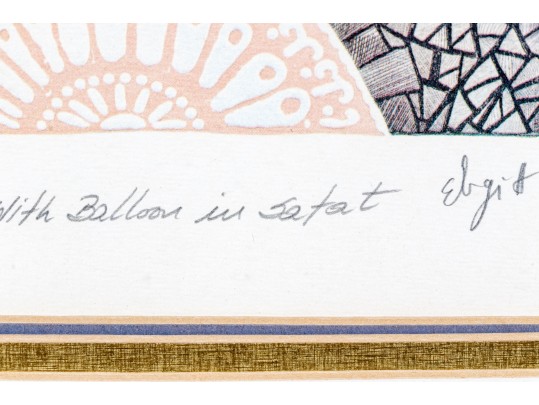 With Balloon in Safat Elbgit